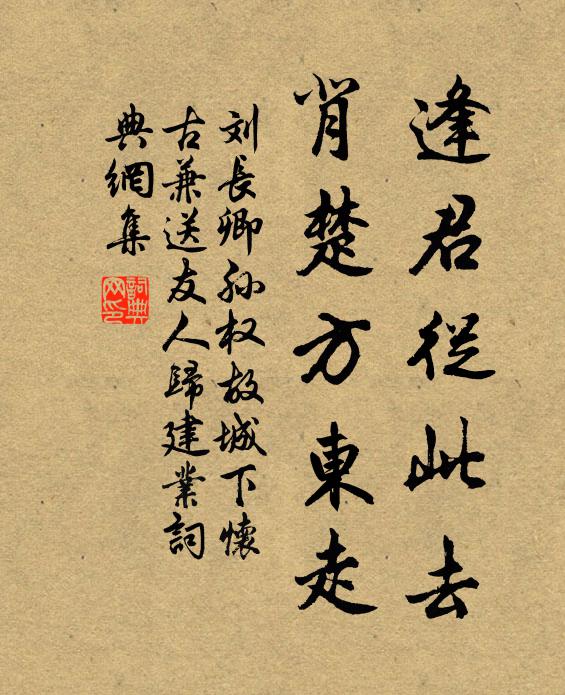 逢君從此去
肖楚方東走
刘長卿孙权故城下懷
古兼送友人歸建業詞
典網集
詞典
网印